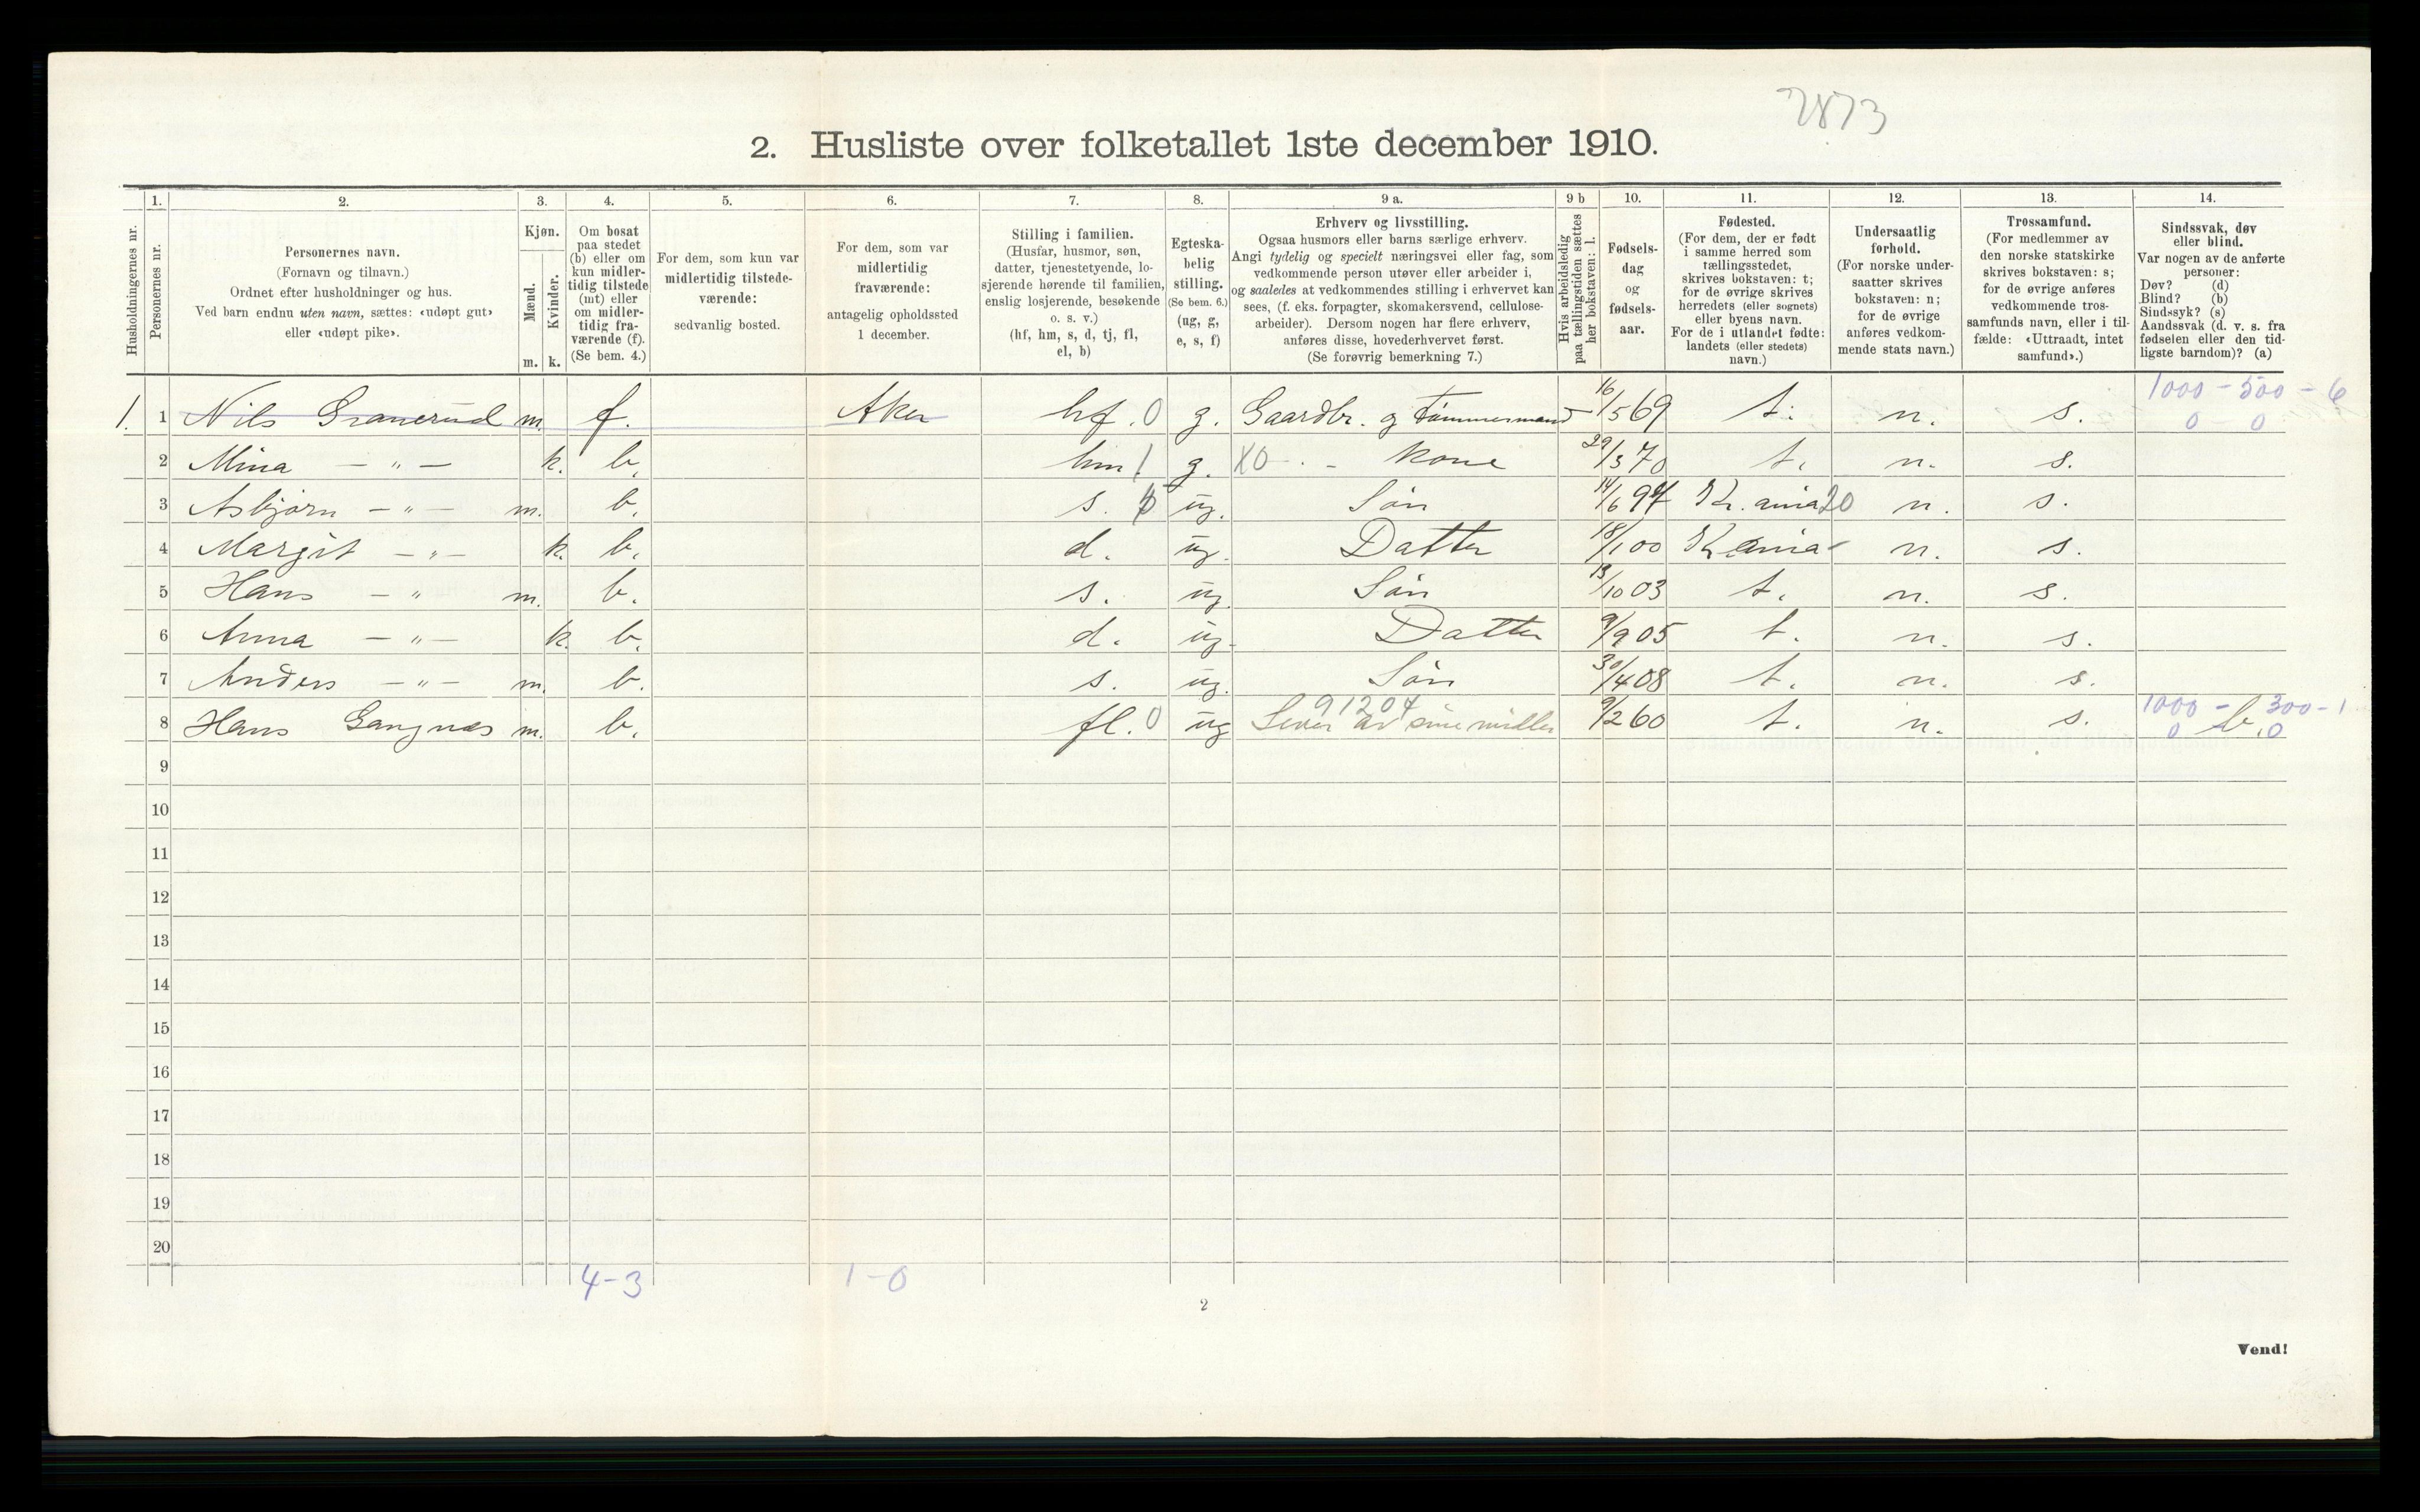 2873
2. Husliste over folketallet 1ste december 1910.
Husholdningernes nr.
1.
Personernes nr.
2.
Personernes navn.
(Fornavn og tilnavn.)
Ordnet efter husholdninger og hus.
Ved barn endnu uten navn, sættes: «udøpt gut»
eller «udøpt pike».
3.
Kjøn.
Mænd.
Kvinder.
m. k.
4.
Om bosat
paa stedet
(b) eller om
kun midler-
tidig tilstede
(mt) eller
om midler-
tidig fra-
værende (f).
(Se bem. 4.)
5.
For dem, som kun var
midlertidig tilstede-
værende:
sedvanlig bosted.
6.
For dem, som var
midlertidig
fraværende:
antagelig opholdssted
1 december.
7.
Stilling i familien.
(Husfar, husmor, søn,
datter, tjenestetyende, lo-
sjerende hørende til familien,
enslig losjerende, besøkende
o. s. v.)
(hf, hm, s, d, tj, fl,
el, b)
8.
Egteska-
belig
stilling.
(Se bem. 6.)
(ug, g,
e, s, f)
9 a.
Erhverv og livsstilling.
Ogsaa husmors eller barns særlige erhverv.
Angi tydelig og specielt næringsvei eller fag, som
vedkommende person utøver eller arbeider i,
og saaledes at vedkommendes stilling i erhvervet kan
sees, (f. eks. forpagter, skomakersvend, cellulose-
arbeider). Dersom nogen har flere erhverv,
anføres disse, hovederhvervet først.
(Se forøvrig bemerkning 7.)
9 b
Hvis arbeidsledig
paa tællingstiden sættes
her bokstaven: l.
10.
Fødsels-
dag
og
fødsels-
aar.
11.
Fødested.
(For dem, der er født
i samme herred som
tællingsstedet,
skrives bokstaven: t;
for de øvrige skrives
herredets (eller sognets)
eller byens navn.
For de i utlandet fødte:
landets (eller stedets)
navn.)
12.
Undersaatlig
forhold.
(For norske under-
saatter skrives
bokstaven: n;
for de øvrige
anføres vedkom-
mende stats navn.)
13.
Trossamfund.
(For medlemmer av
den norske statskirke
skrives bokstaven: s;
for de øvrige anføres
vedkommende tros-
samfunds navn, eller i til-
fælde: «Uttraadt, intet
samfund».)
14.
Sindssvak, døv
eller blind.
Var nogen av de anførte
personer:
Døv? (d)
Blind? (b)
Sindssyk? (s)
Aandssvak (d. v. s. fra
fødselen eller den tid-
ligste barndom)? (a)
1. 1 Nils Granerud m. f. Aker hf. 0 g. Gaardbr. og Tømmermand 16/5 69 t. n. s. 1000 - 500 - 6
0 0
2 Mina - " - k. b. hm. 1 g. X0 - Kone 29/3 70 t. n. s.
3 Asbjørn - " - m. b. s. ug. Søn 14/6 97 Kr.ania 20 n. s.
4 Margit - " - k. b. d. ug. Datter 18/1 00 Krania n. s.
5 Hans - " m. b. s. ug. Søn 13/10 03 t. n. s.
6 Anna - " - k. b. d. ug. Datter 9/9 05 t. n. s.
7 Anders - " - m. b. s. ug. Søn 30/4 08 t. n. s.
91204
8 Hans Gangnæs m. b. fl. 0 ug Lever av sine midler 9/2 60 t. n. s. 1000 - 300 - 1
0 b. 0
9
10
11
12
13
14
15
16
17
18
19
20
4-3 1-0
2
Vend!